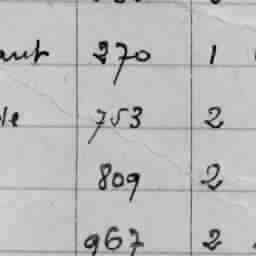 270 1
753 2
809 2
967 2